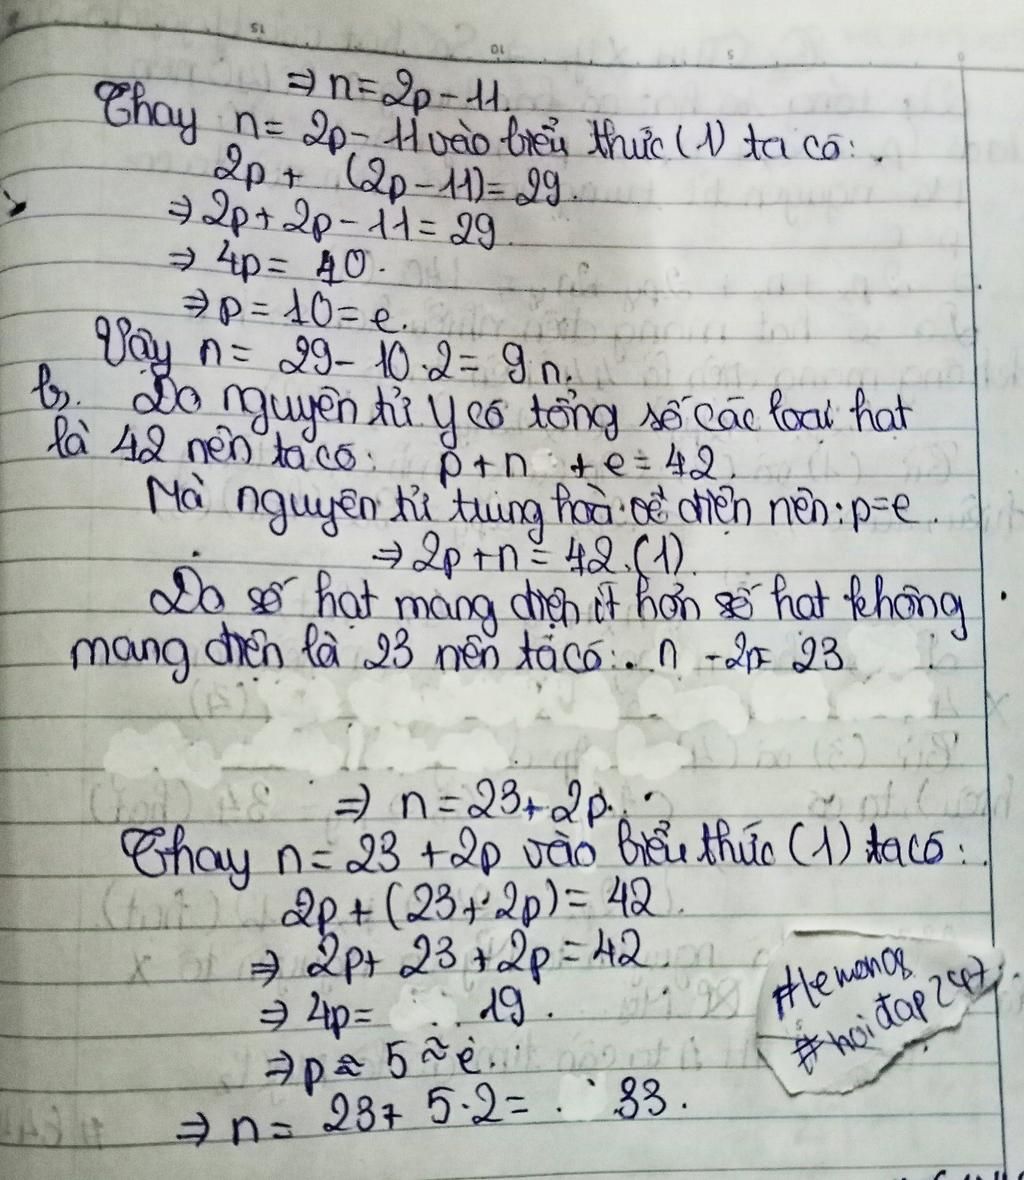 ⇒ n = 2p - 11.
Thay n = 2p - 11 vào biểu thức (1) ta có:
2p + (2p - 11) = 29.
⇒ 2p + 2p - 11 = 29
⇒ 4p = 40.
⇒ p = 10 = e.
Vậy n = 29 - 10.2 = 9 n.
b. Do nguyên tử Y có tổng số các loại hạt
là 42 nên ta có: p + n + e = 42.
Mà nguyên tử trung hoà về điện nên: p = e.
⇒ 2p + n = 42. (1)
Do số hạt mang điện ít hơn số hạt không
mang điện là 23 nên ta có: n - 2p = 23
⇒ n = 23 + 2p.
Thay n = 23 + 2p vào biểu thức (1) ta có:
2p + (23 + 2p) = 42.
⇒ 2p + 23 + 2p = 42.
⇒ 4p = 19.
⇒ p ≈ 5 ≈ e.
⇒ n = 23 + 5.2 = 33.
#hoidap247